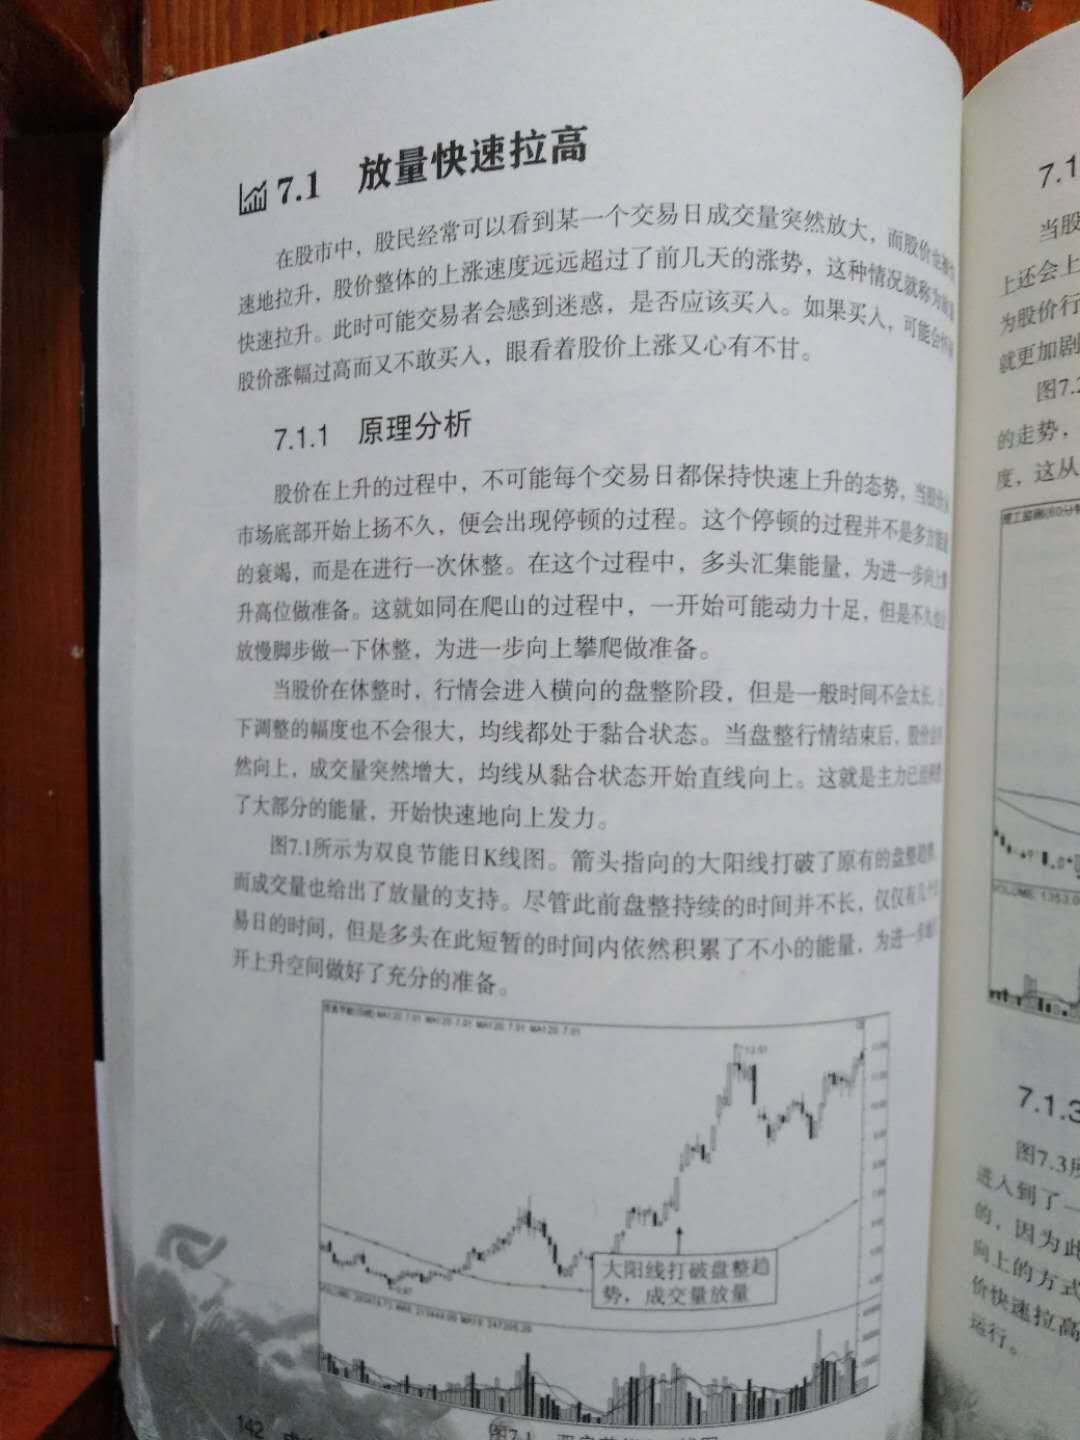 7.1 放量快速拉高
在股市中，股民经常可以看到某一个交易日成交量突然放大，而股价也
速地拉升，股价整体的上涨速度远远超过了前几天的涨势，这种情况就称为
快速拉升。此时可能交易者会感到迷惑，是否应该买入。如果买入，可能会
股价涨幅过高而又不敢买入，眼看着股价上涨又心有不甘。
7.1.1 原理分析
股价在上升的过程中，不可能每个交易日都保持快速上升的态势，当股价
市场底部开始上扬不久，便会出现停顿的过程。这个停顿的过程并不是多方
的衰竭，而是在进行一次休整。在这个过程中，多头汇集能量，为进一步向上
升高位做准备。这就如同在爬山的过程中，一开始可能动力十足，但是不久也
放慢脚步做一下休整，为进一步向上攀爬做准备。
当股价在休整时，行情会进入横向的盘整阶段，但是一般时间不会太长，
下调整的幅度也不会很大，均线都处于黏合状态。当盘整行情结束后，股价
然向上，成交量突然增大，均线从黏合状态开始直线向上。这就是主力已经
了大部分的能量，开始快速地向上发力。
图7.1所示为双良节能日K线图。箭头指向的大阳线打破了原有的盘整趋势，
而成交量也给出了放量的支持。尽管此前盘整持续的时间并不长，仅仅有几个
易日的时间，但是多头在此短暂的时间内依然积累了不小的能量，为进一步
开上升空间做好了充分的准备。
大阳线打破盘整趋
势，成交量放量
142
图7.1
7.1
当股
上还会上
为股价行
就更加剧
图7.2
的走势，
度，这从
7.1.3
图7.3所
进入到了一
的，因为此
向上的方式
价快速拉高
运行。